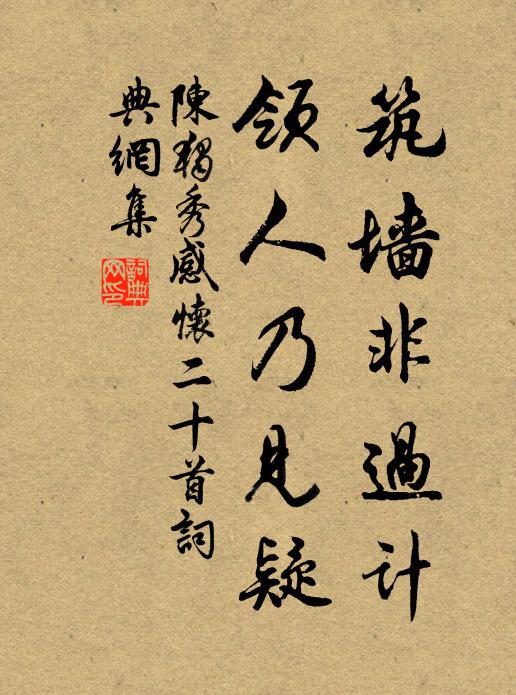 筑墙非過计
领人乃見疑
陳独秀感懷二十首詞
典網集
詞典網印